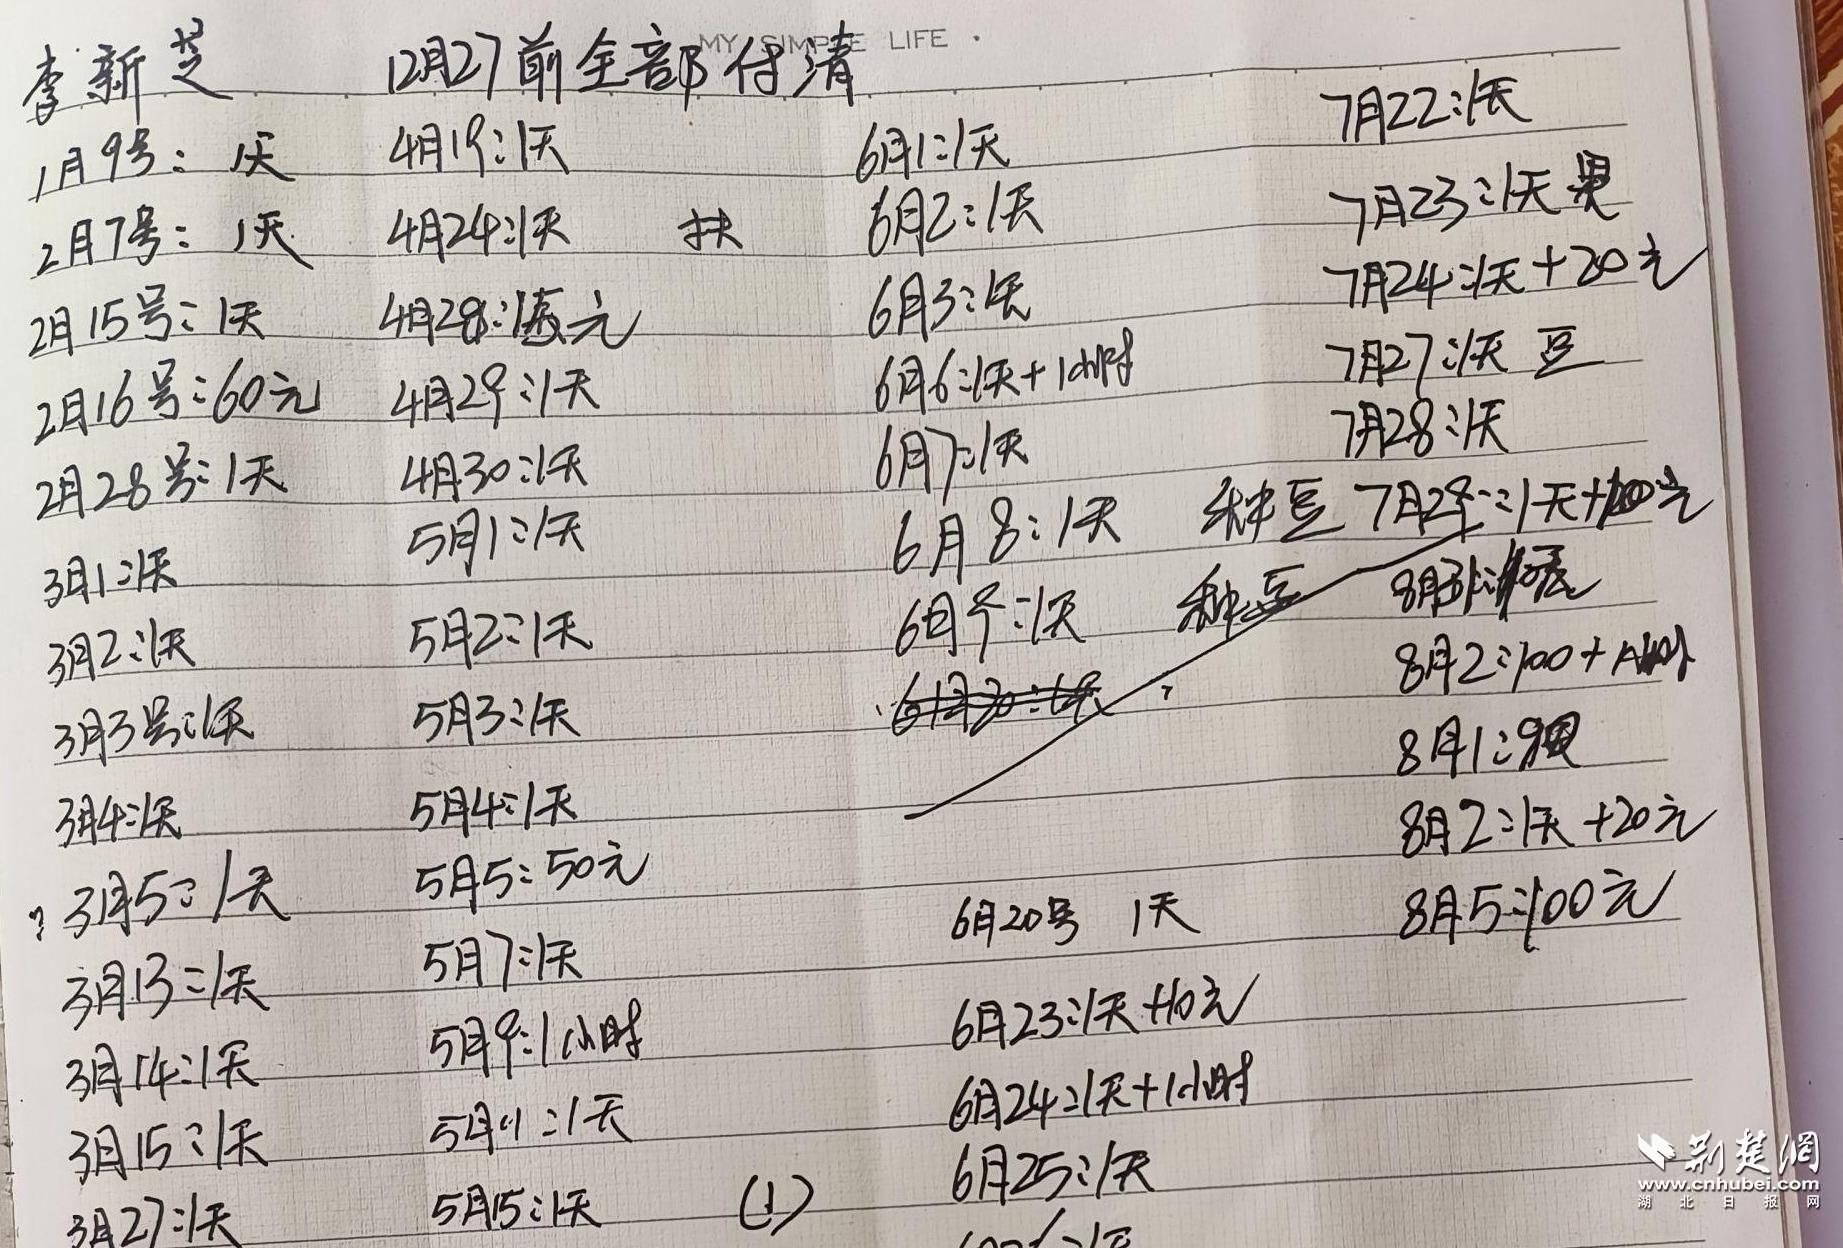 MY SIMPLE LIFE
李新芝 12月27前全部付清
1月9号：1天
2月7号：1天
2月15号：1天
2月16号：60元
2月28号：1天
3月1：1天
3月2：1天
3月3号：1天
3月4：1天
3月5：1天
3月13：1天
3月14：1天
3月15：1天
3月27：1天
4月19：1天
4月24：1天 扶
4月28：元
4月29：1天
4月30：1天
5月1：1天
5月2：1天
5月3：1天
5月4：1天
5月5：50元
5月7：1天
5月9：1小时
5月11：1天
5月15：1天
(1)
6月1：1天
6月2：1天
6月3：1天
6月6：1天+1小时
6月7：1天
6月8：1天 种豆
6月9：1天 种豆
6月20号 1天
6月23：1天+10元
6月24：1天+1小时
6月25：1天
7月22：1天
7月23：1天
7月24：1天+20元
7月27：1天 豆
7月28：1天
7月29：1天+100元
8月2：100+
8月1：
8月2：1天+20元
8月5：100元
荆楚網
www.cnhubei.com
湖北日报网